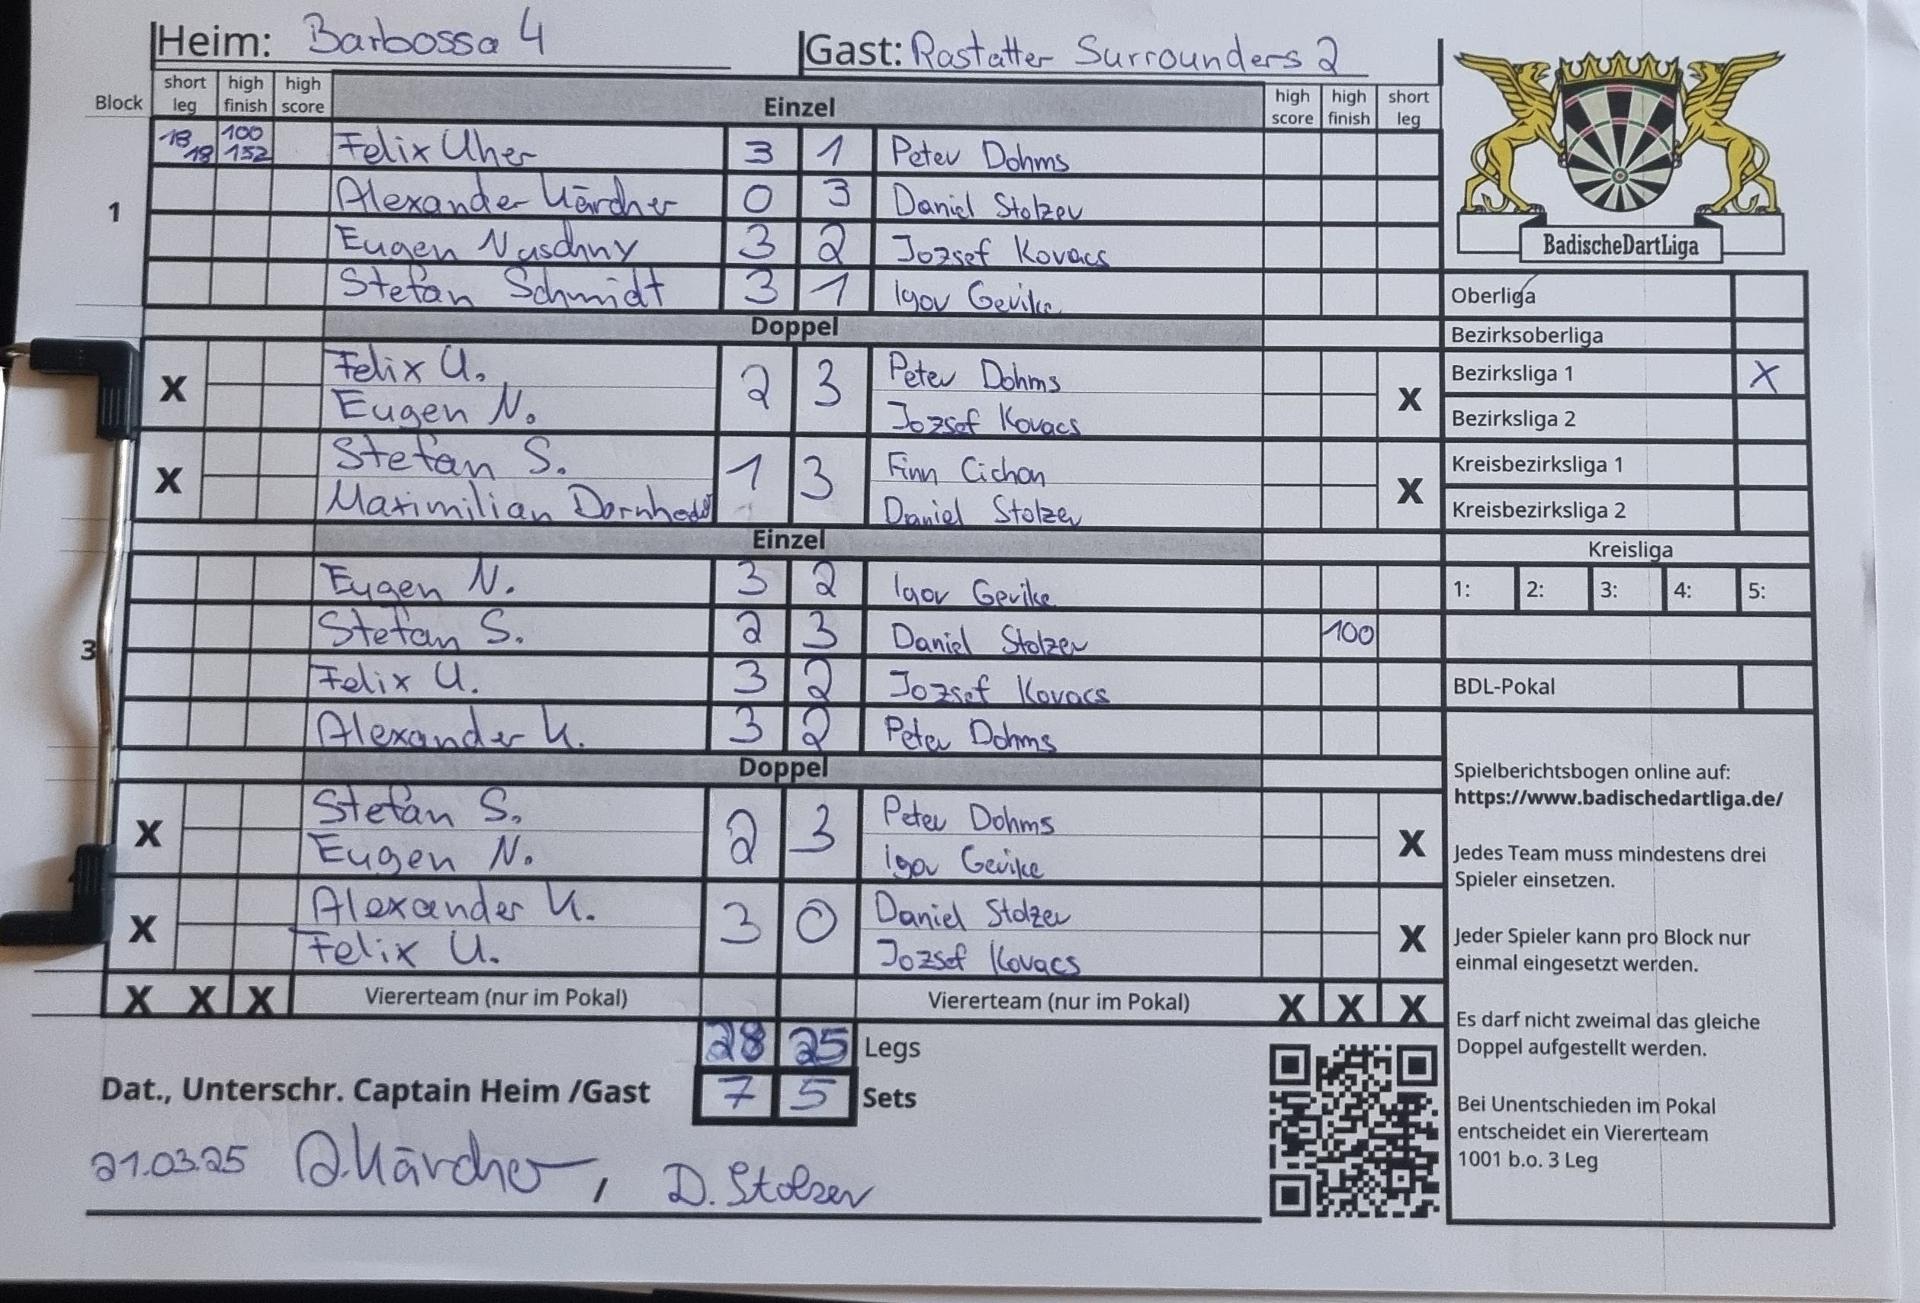 Heim: Barbossa 4 Gast: Rastatter Surrounders 2
Block short leg high finish high score Einzel high score high finish short leg
18 18 100 152 Felix Uher 3 1 Peter Dohms
1 Alexander Kärcher 0 3 Daniel Stolzer
Eugen Naschny 3 2 Jozsef Kovacs
Stefan Schmidt 3 1 Igor Gerike
Doppel
X Felix U. 2 3 Peter Dohms X
Eugen N. Jozsef Kovacs
X Stefan S. 1 3 Finn Cichon X
Maximilian Daniel Stolzer
Einzel
Eugen N. 3 2 Igor Gerike
3 Stefan S. 2 3 Daniel Stolzer 100
Felix U. 3 2 Jozsef Kovacs
Alexander K. 3 2 Peter Dohms
Doppel
X Stefan S. 2 3 Peter Dohms X
Eugen N. Igor Gerike
X Alexander K. 3 0 Daniel Stolzer X
Felix U. Jozsef Kovacs
X X X Viererteam (nur im Pokal) Viererteam (nur im Pokal) X X X
28 25 Legs
Dat., Unterschr. Captain Heim /Gast 7 5 Sets
21.03.25 A.Kärcher, D. Stolzer
BadischeDartLiga
Oberliga
Bezirksoberliga
Bezirksliga 1 X
Bezirksliga 2
Kreisbezirksliga 1
Kreisbezirksliga 2
Kreisliga
1: 2: 3: 4: 5:
BDL-Pokal
Spielberichtsbogen online auf:
https://www.badischedartliga.de/
Jedes Team muss mindestens drei
Spieler einsetzen.
Jeder Spieler kann pro Block nur
einmal eingesetzt werden.
Es darf nicht zweimal das gleiche
Doppel aufgestellt werden.
Bei Unentschieden im Pokal
entscheidet ein Viererteam
1001 b.o. 3 Leg